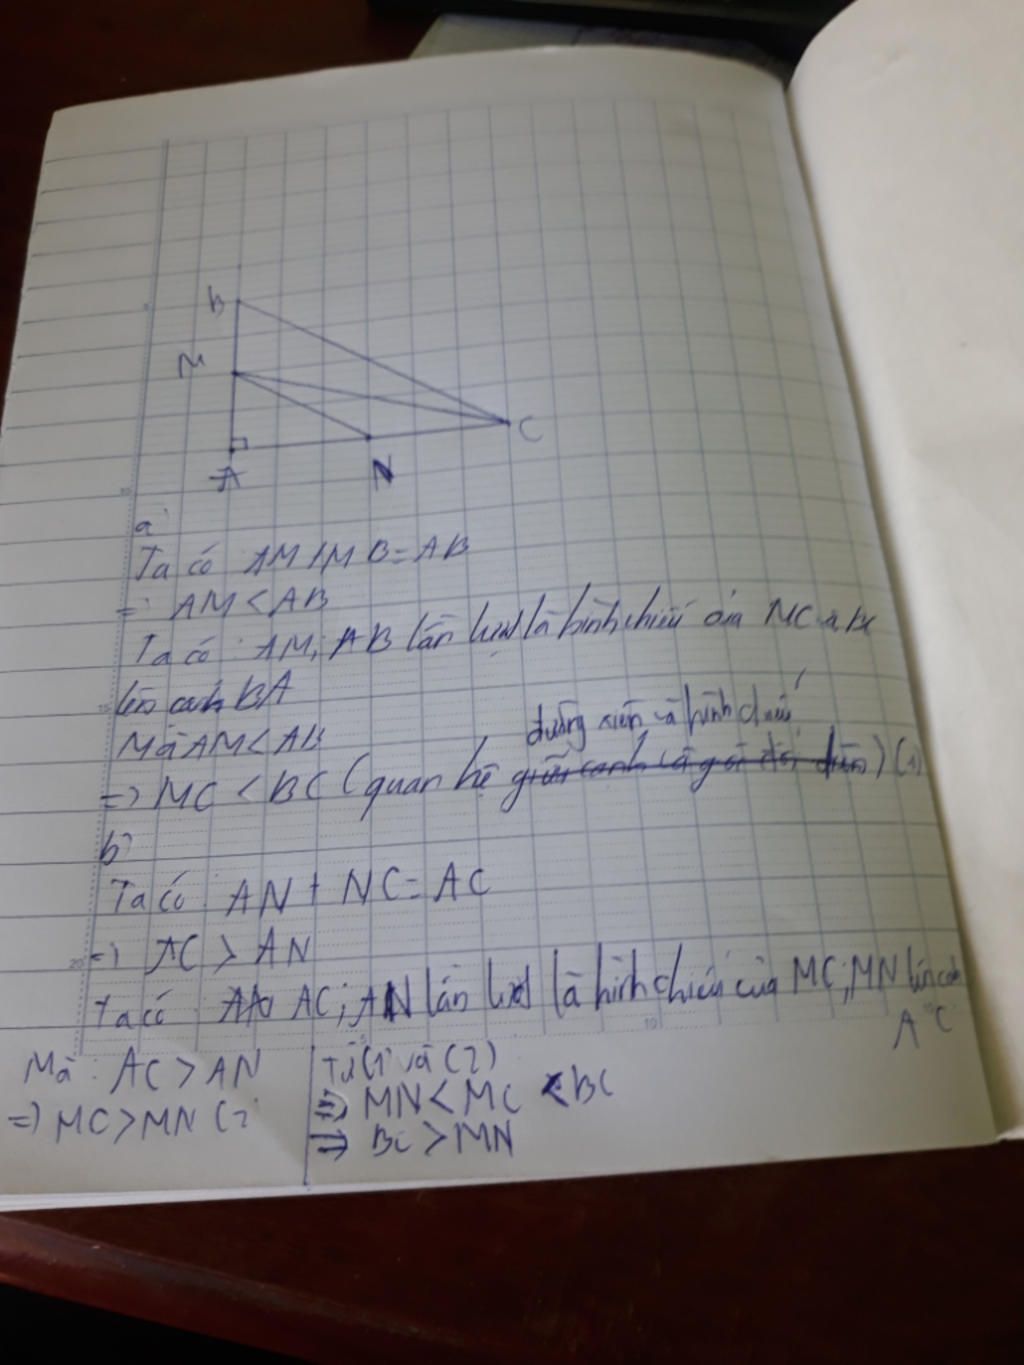 B
M
C
A
N
a
Ta có AM + MB = AB
=> AM < AB
Ta có : AM; AB lần lượt là hình chiếu của MC và BC
lên cạnh BA
Mà AM < AB
đường xiên và hình chiếu
=> MC < BC (quan hệ giữa cạnh và góc đối diện) (1)
b
Ta có : AN + NC = AC
=> AC > AN
Ta có : AC; AN lần lượt là hình chiếu của MC; MN lên cạnh
AC
Mà : AC > AN
=> MC > MN (2
Từ (1 và (2)
=> MN < MC < BC
=> BC > MN